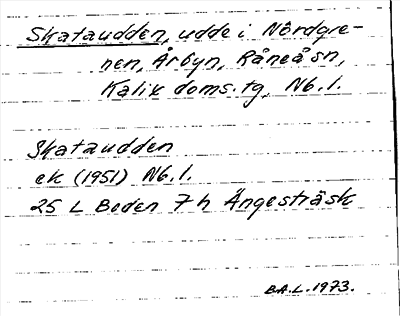 Skataudden, udde i Nördgre-
nen, Årbyn, Råneå sn,
Kalix doms.tg, Nb.l.
Skataudden
ek (1951) Nb.l.
25 L Boden 7 h Ängesträsk
B.A.L. 1973.